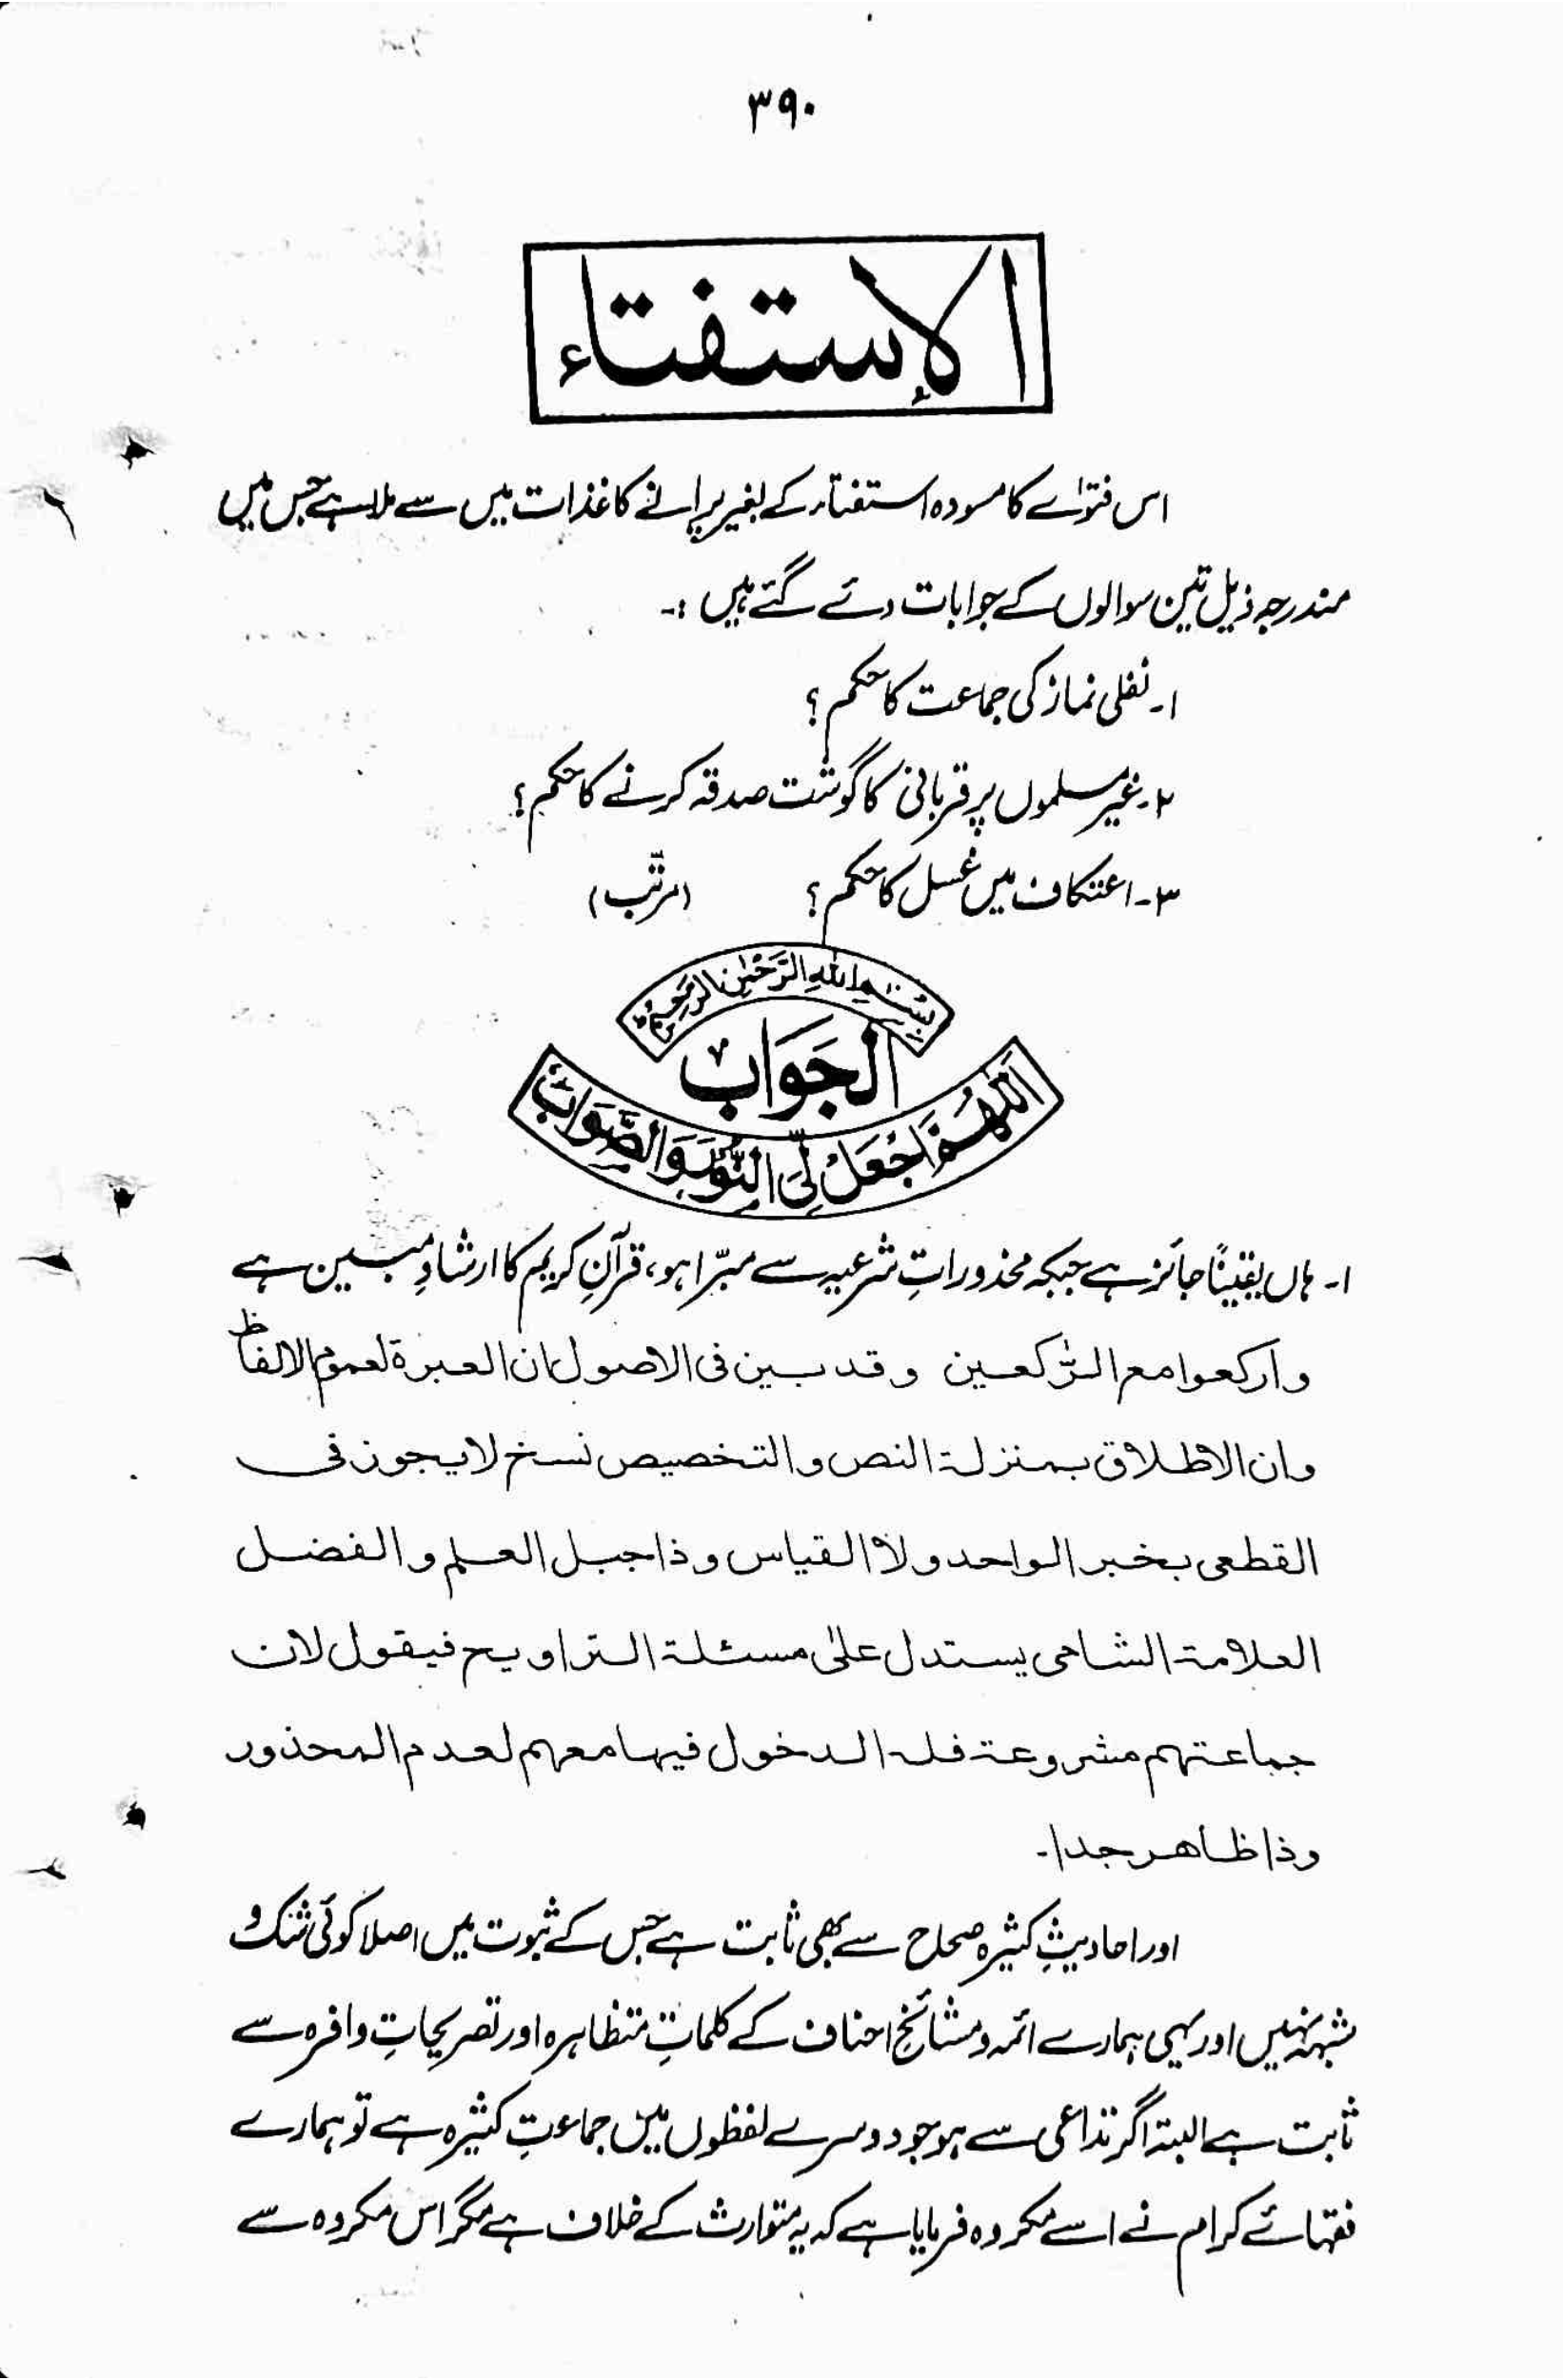 ۳۹۰
الاستفتاء
اس فتوٰے کا مسودہ استفتاء کے بغیر پرانے کاغذات میں سے ملا ہے جس میں
مندرجہ ذیل تین سوالوں کے جوابات دئے گئے ہیں :۔
۱۔ نفلی نماز کی جماعت کا حکم ؟
۲۔ غیر مسلموں پر قربانی کا گوشت صدقہ کرنے کا حکم ؟
۳۔ اعتکاف میں غسل کا حکم ؟ (مرتّب)
بِسْمِ اللهِ الرَّحْمٰنِ الرَّحِيْمِ
الجَوَابُ
اَللّٰهُمَّ اجْعَلْ لِّیَ النُّوْرَ وَالصَّوَابَ
۱۔ ہاں یقینًا جائز ہے جبکہ محذوراتِ شرعیہ سے مبرّا ہو، قرآنِ کریم کا ارشادِ مبین ہے
وارکعوا مع الرّٰکعین وقد بین فی الاصول ان العبرۃ لعموم الالفاظ
وان الاطلاق بمنزلۃ النص والتخصیص نسخ لا یجوز فی
القطعی بخبر الواحد ولا القیاس وذا جبل العلم والفضل
العلامۃ الشامی یستدل علیٰ مسئلۃ التراویح فیقول لان
جماعتہم مشروعۃ فلہ الدخول فیہا معہم لعدم المحذور
وذا ظاھر جدا۔
اور احادیثِ کثیرہ صحاح سے بھی ثابت ہے جس کے ثبوت میں اصلا کوئی شک و
شبہہ نہیں اور یہی ہمارے ائمہ و مشائخِ احناف کے کلماتِ متظاہرہ اور تصریحاتِ وافرہ سے
ثابت ہے البتہ اگر تداعی سے ہو جو دوسرے لفظوں میں جماعتِ کثیرہ ہے تو ہمارے
فقہائے کرام نے اسے مکروہ فرمایا ہے کہ یہ متوارث کے خلاف ہے مگر اس مکروہ سے